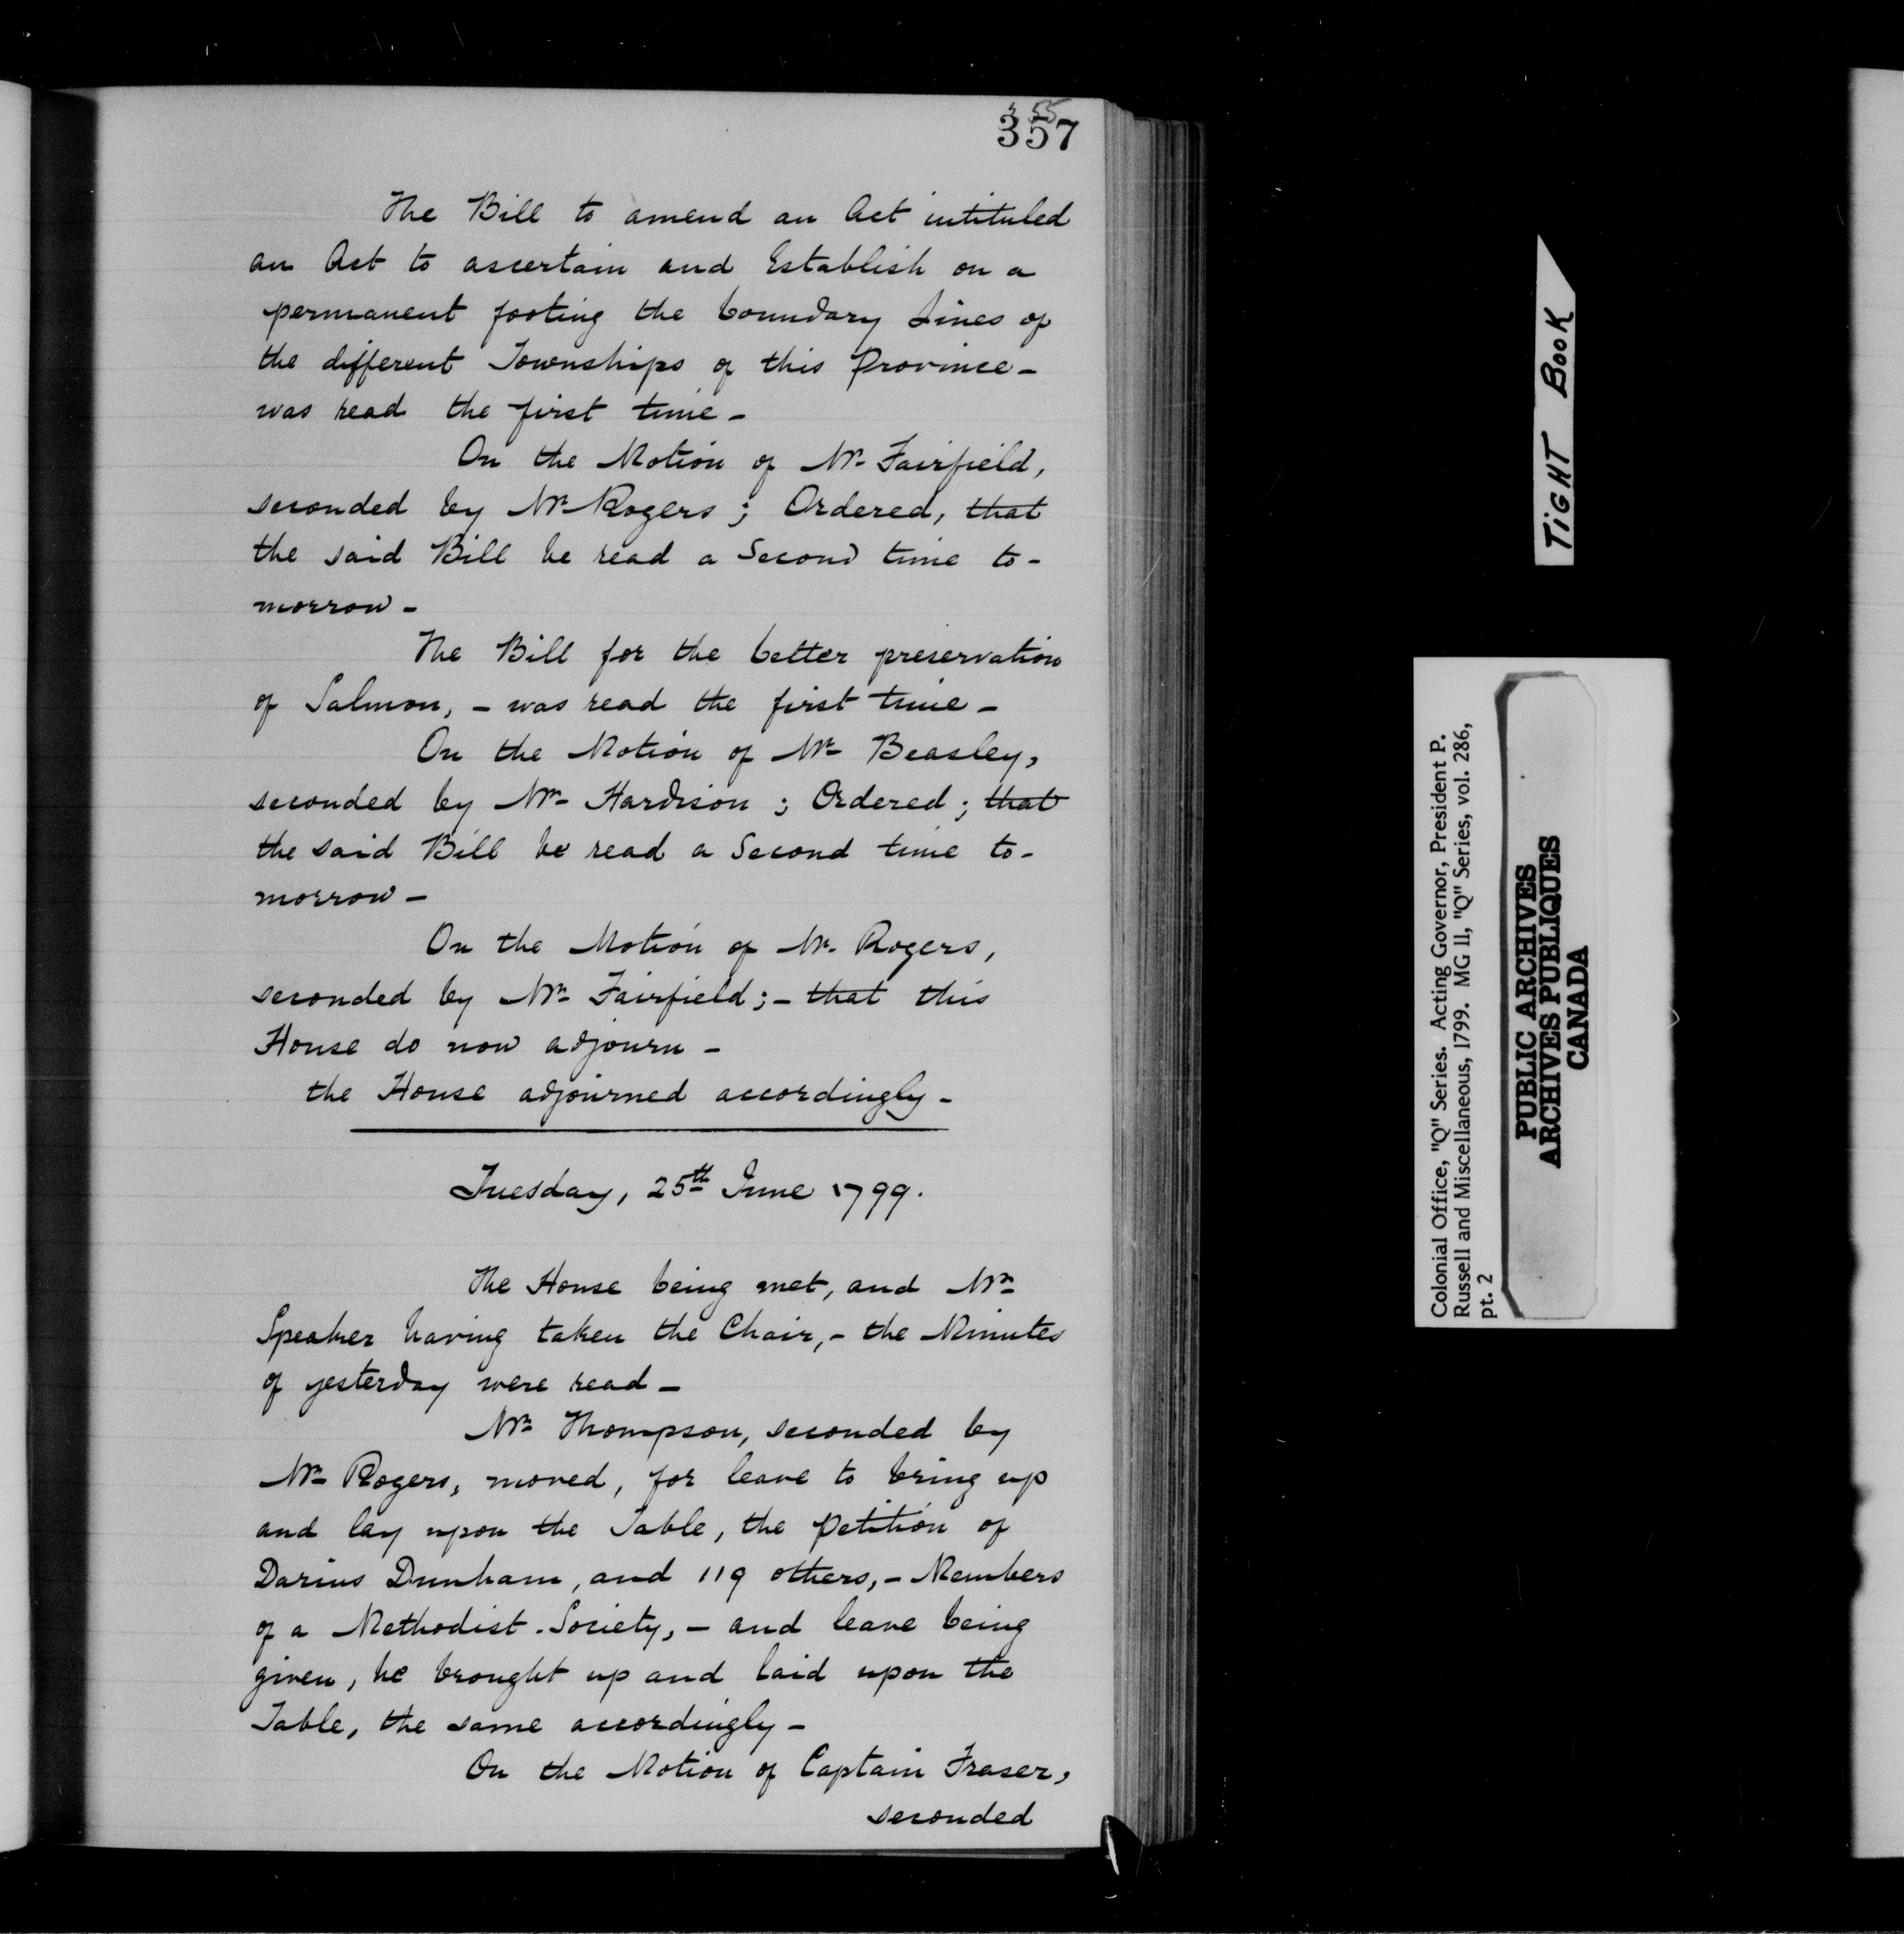 357
The Bill to amend an Act intituled
an Act to ascertain and Establish on a
permanent footing the boundary Lines of
the different Townships of this Province -
was read the first time -
On the Motion of Mr. Fairfield,
seconded by Mr. Rogers; Ordered, that
the said Bill be read a Second time to-
morrow -
The Bill for the better preservation
of Salmon, - was read the first time -
On the Motion of Mr. Beasley,
seconded by Mr. Hardison; Ordered; that
the said Bill be read a Second time to-
morrow -
On the Motion of Mr. Rogers,
seconded by Mr. Fairfield; - that this
House do now adjourn -
the House adjourned accordingly -
Tuesday, 25th June 1799.
The House being met, and Mr.
Speaker having taken the Chair, - the Minutes
of yesterday were read -
Mr. Thompson, seconded by
Mr. Rogers, moved, for leave to bring up
and lay upon the Table, the petition of
Darius Dunham, and 119 others, - Members
of a Methodist Society, - and leave being
given, he brought up and laid upon the
Table, the same accordingly -
On the Motion of Captain Fraser,
seconded
TIGHT BOOK
Colonial Office, "Q" Series. Acting Governor, President P.
Russell and Miscellaneous, 1799. MG 11, "Q" Series, vol. 286,
pt. 2
PUBLIC ARCHIVES
ARCHIVES PUBLIQUES
CANADA